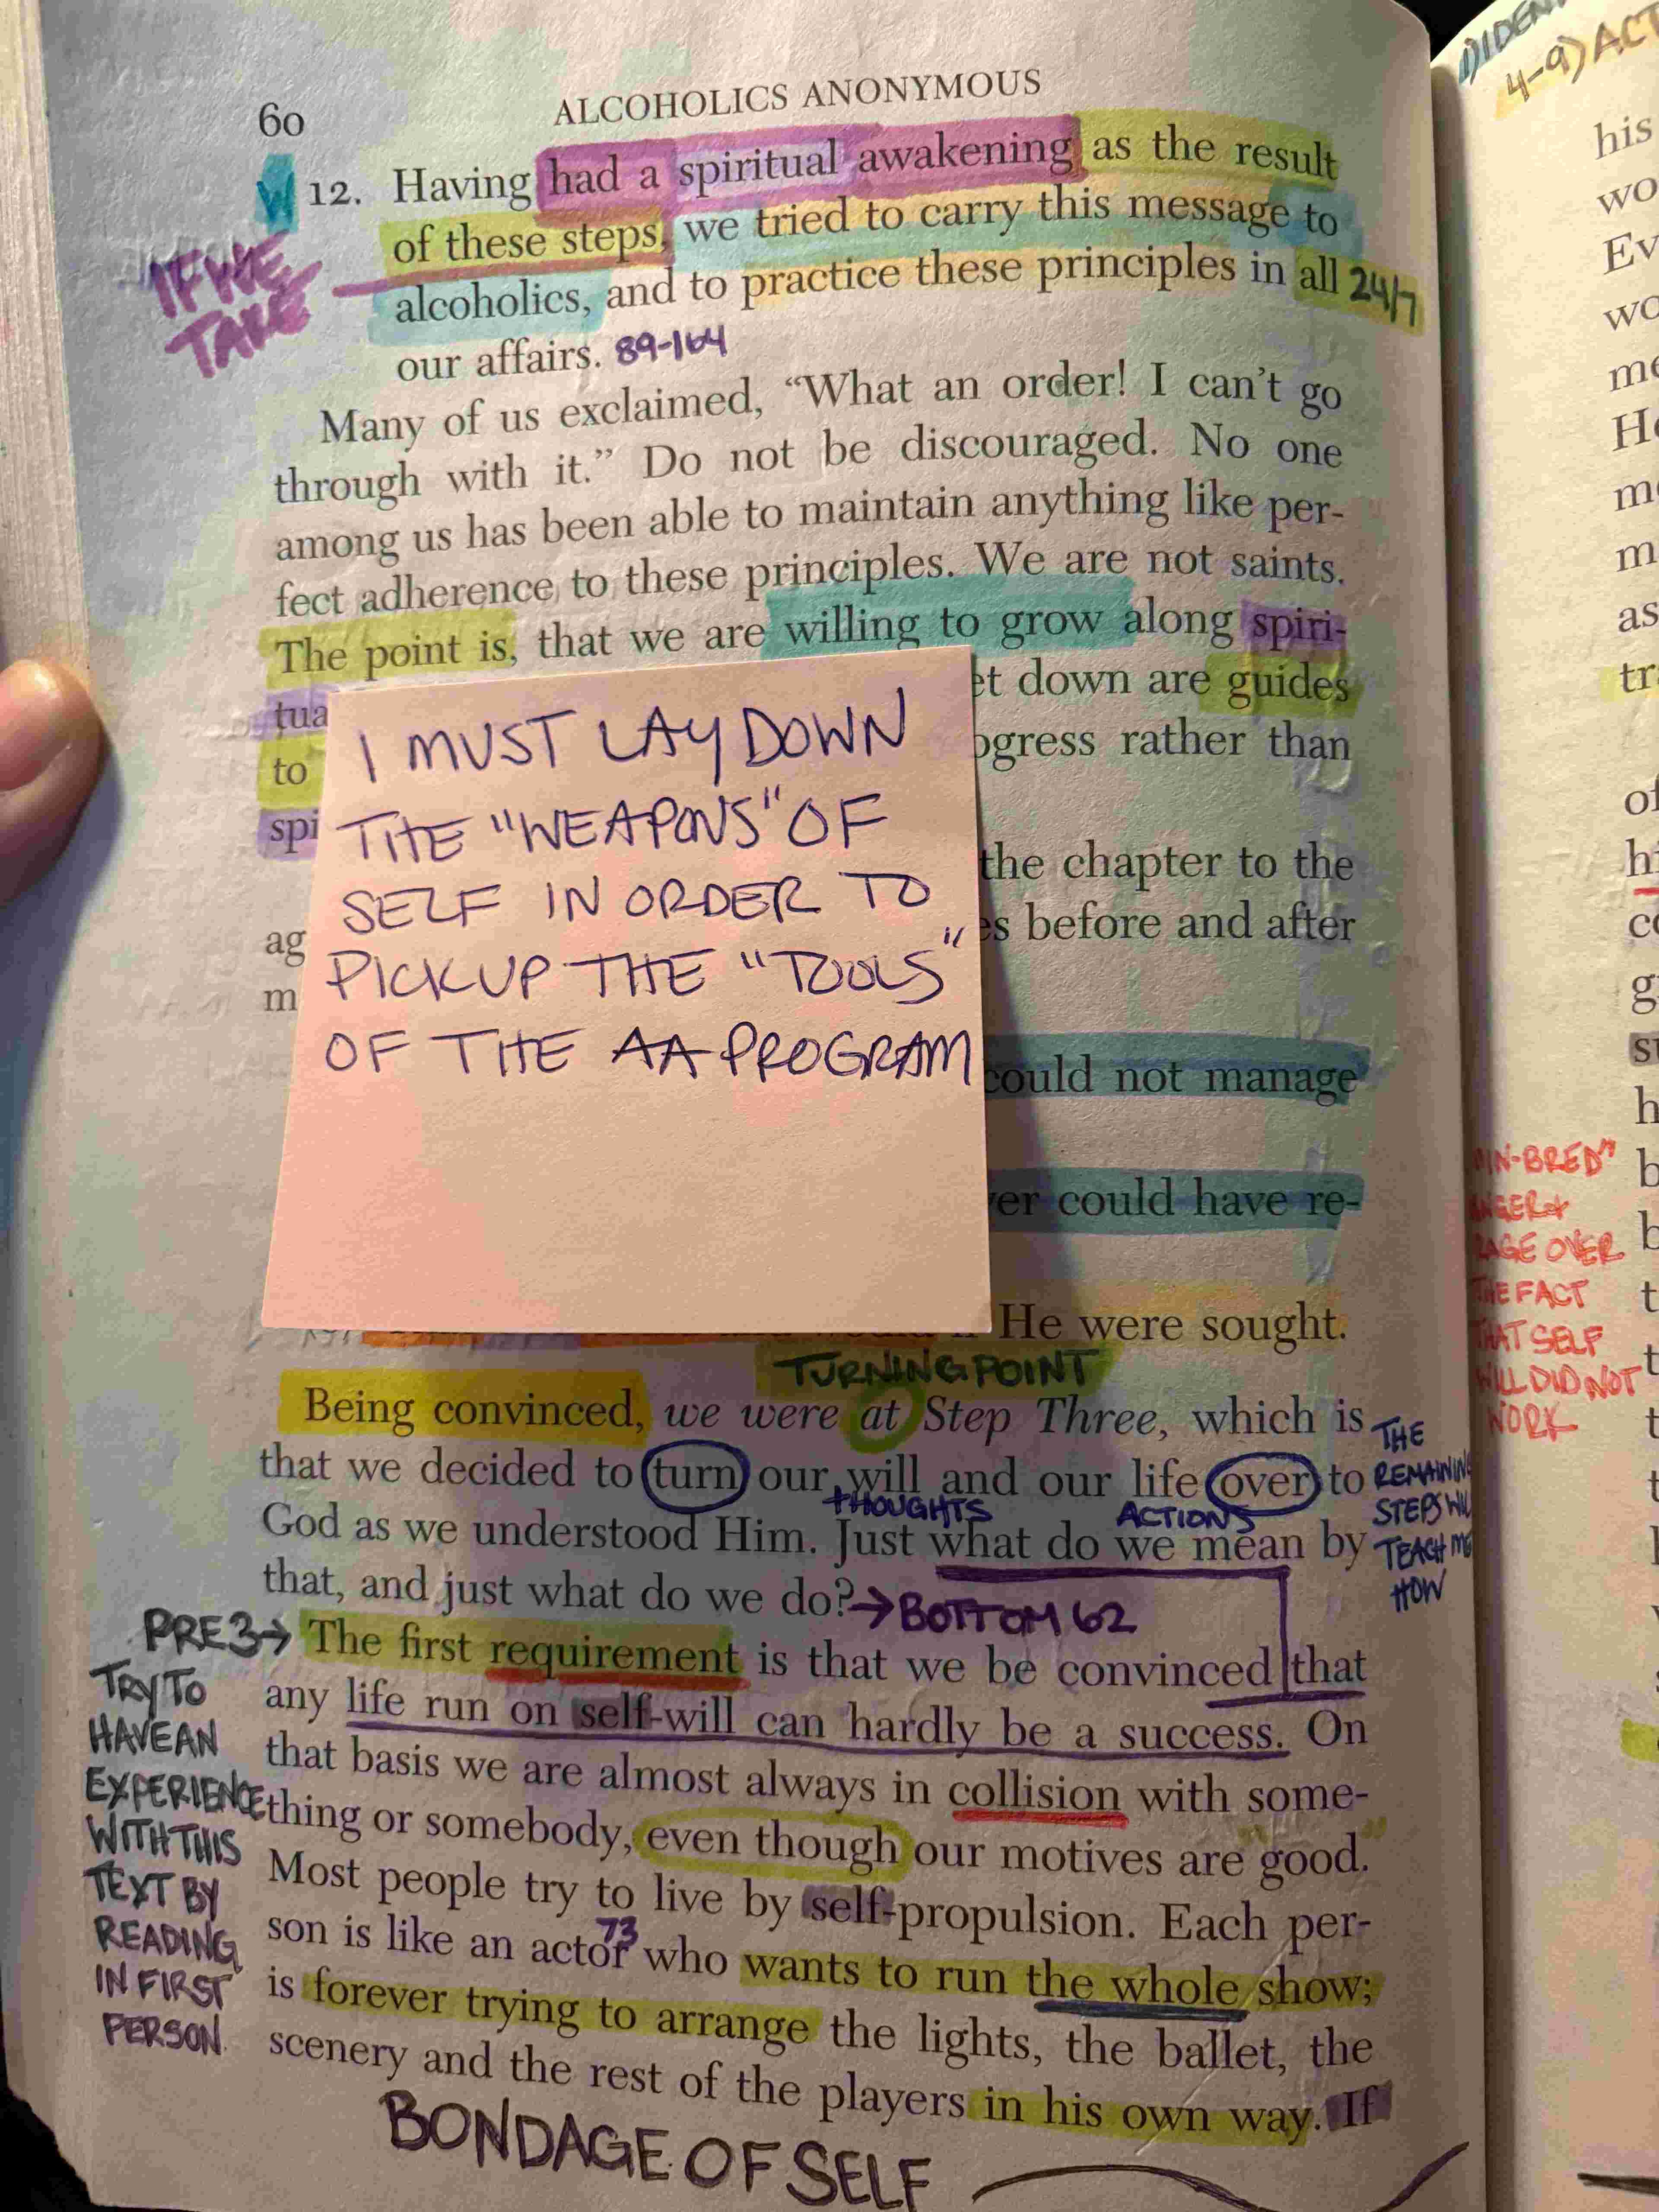 60
ALCOHOLICS ANONYMOUS
W 12. Having had a spiritual awakening as the result
of these steps, we tried to carry this message to
IF WE
TAKE
alcoholics, and to practice these principles in all 24/7
our affairs. 89-164
Many of us exclaimed, “What an order! I can’t go
through with it.” Do not be discouraged. No one
among us has been able to maintain anything like per-
fect adherence to these principles. We are not saints.
The point is, that we are willing to grow along spiri-
tua
et down are guides
to
ogress rather than
spi
the chapter to the
ag
es before and after
m
could not manage
er could have re-
He were sought.
I MUST LAY DOWN
THE "WEAPONS" OF
SELF IN ORDER TO
PICK UP THE "TOOLS"
OF THE AA PROGRAM
TURNING POINT
Being convinced, we were at Step Three, which is
that we decided to turn our will and our life over to
THOUGHTS ACTIONS
God as we understood Him. Just what do we mean by
that, and just what do we do? → BOTTOM 62
THE
REMAINING
STEPS WILL
TEACH ME
HOW
PRE 3 → The first requirement is that we be convinced that
any life run on self-will can hardly be a success. On
that basis we are almost always in collision with some-
thing or somebody, even though our motives are good.
Most people try to live by self-propulsion. Each per-
73
son is like an actor who wants to run the whole show;
is forever trying to arrange the lights, the ballet, the
scenery and the rest of the players in his own way. If
TRY TO
HAVE AN
EXPERIENCE
WITH THIS
TEXT BY
READING
IN FIRST
PERSON.
BONDAGE OF SELF
4-9) ACT
his
wo
Ev
wo
me
He
m
as
tr
of
hi
co
g
h
"IN-BRED"
ANGER &
RAGE OVER
THE FACT
THAT SELF
WILL DID NOT
WORK